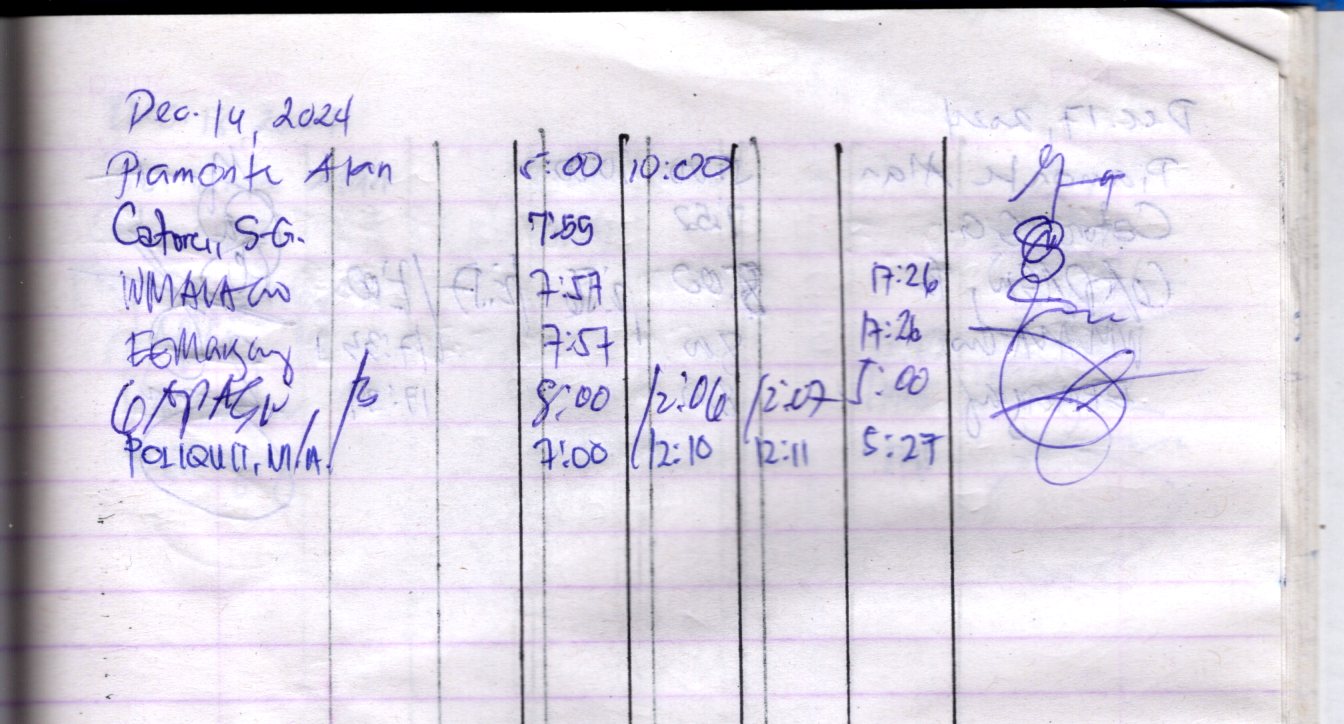 Dec. 14, 2024
Piamonte Alan 5:00 10:00
Catora, S.G. 7:55
7:57 17:26
EGMagay 7:57 17:26
8:00 12:06 12:07 5:00
POLIQUIT, M/A. 7:00 12:10 12:11 5:27